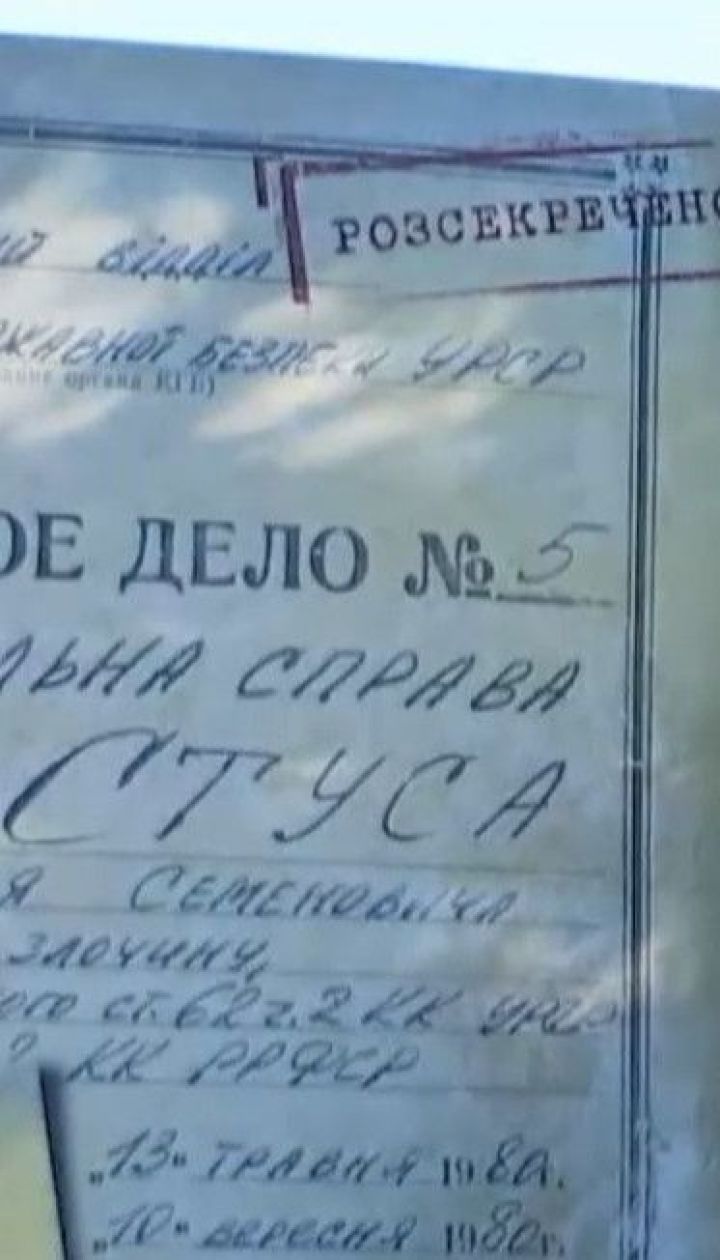 РОЗСЕКРЕЧЕНО
ий відділ
ржавної безпеки УРСР
ание органа КГБ)
ОЕ ДЕЛО № 5
льна справа
Стуса
я Семеновича
злочину,
ого ст. 62 ч. 2 КК УРСР
КК РРФСР
„13“ травня 1980.
„10“ вересня 1980г.